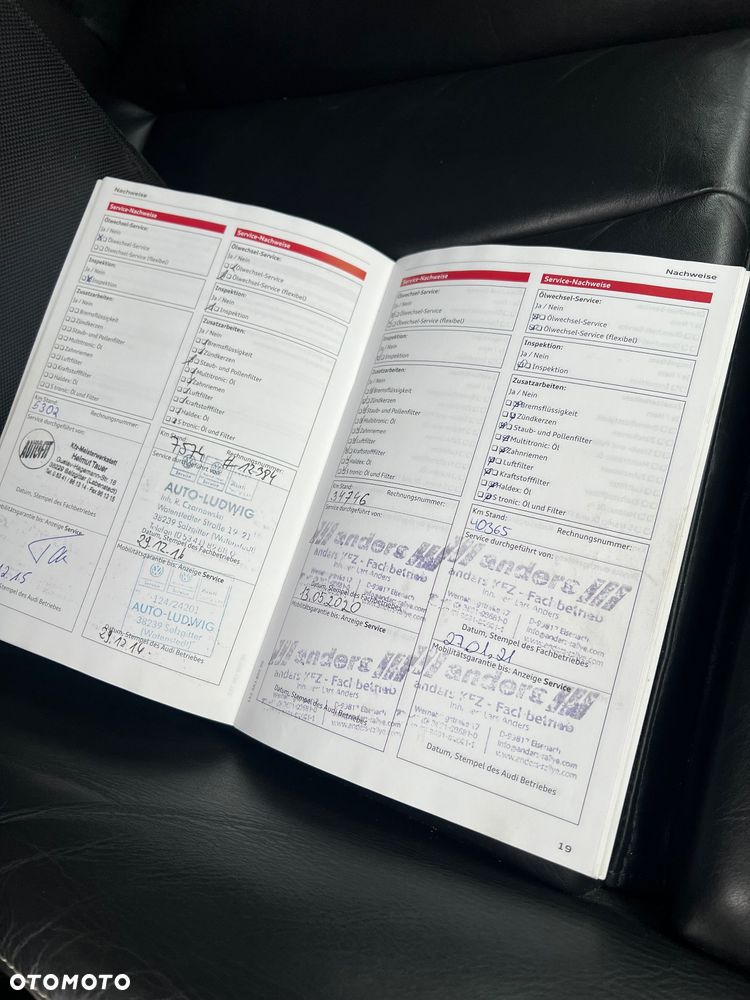 Nachweise
Service-Nachweise
Ölwechsel-Service:
Ja / Nein
Ölwechsel-Service
Ölwechsel-Service (flexibel)
Inspektion:
Ja / Nein
Inspektion
Zusatzarbeiten:
Ja / Nein
Bremsflüssigkeit
Zündkerzen
Staub- und Pollenfilter
Multitronic: Öl
Zahnriemen
Luftfilter
Kraftstofffilter
Haldex: Öl
S tronic: Öl und Filter
Km Stand:
5302
Rechnungsnummer:
Service durchgeführt von:
Kfz-Meisterwerkstatt
Helmut Tauer
Stempel des Fachbetriebes
Mobilitätsgarantie bis: Anzeige Service
Stempel des Audi Betriebes
Service-Nachweise
Ölwechsel-Service:
Ja / Nein
Ölwechsel-Service
Ölwechsel-Service (flexibel)
Inspektion:
Ja / Nein
Inspektion
Zusatzarbeiten:
Ja / Nein
Bremsflüssigkeit
Zündkerzen
Staub- und Pollenfilter
Multitronic: Öl
Zahnriemen
Luftfilter
Kraftstofffilter
Haldex: Öl
S tronic: Öl und Filter
Km Stand:
Rechnungsnummer:
7974
Service durchgeführt von:
AUTO-LUDWIG
Inh. R. Czarnowski
Watenstedter Straße 19-21
38239 Salzgitter (Watenstedt)
Datum, Stempel des Fachbetriebes
29.12.14
Mobilitätsgarantie bis: Anzeige Service
124/24201
AUTO-LUDWIG
38239 Salzgitter
(Watenstedt)
Datum, Stempel des Audi Betriebes
29.12.14.
Nachweise
Service-Nachweise
Ölwechsel-Service:
Ja / Nein
Ölwechsel-Service
Ölwechsel-Service (flexibel)
Inspektion:
Ja / Nein
Inspektion
Zusatzarbeiten:
Ja / Nein
Bremsflüssigkeit
Zündkerzen
Staub- und Pollenfilter
Multitronic: Öl
Zahnriemen
Luftfilter
Kraftstofffilter
Haldex: Öl
S tronic: Öl und Filter
Km Stand:
Rechnungsnummer:
34746
Service durchgeführt von:
anders
anders KFZ - Fachbetrieb
Inh. Lars Anders
Datum, Stempel des Fachbetriebes
13.05.2020
Mobilitätsgarantie bis: Anzeige Service
anders
anders KFZ - Fachbetrieb
Datum, Stempel des Audi Betriebes
Service-Nachweise
Ölwechsel-Service:
Ja / Nein
Ölwechsel-Service
Ölwechsel-Service (flexibel)
Inspektion:
Ja / Nein
Inspektion
Zusatzarbeiten:
Ja / Nein
Bremsflüssigkeit
Zündkerzen
Staub- und Pollenfilter
Multitronic: Öl
Zahnriemen
Luftfilter
Kraftstofffilter
Haldex: Öl
S tronic: Öl und Filter
Km Stand:
Rechnungsnummer:
40365
Service durchgeführt von:
anders
anders KFZ - Fachbetrieb
Inhaber Lars Anders
Datum, Stempel des Fachbetriebes
Mobilitätsgarantie bis: Anzeige Service
anders
anders KFZ - Fachbetrieb
Inhaber Lars Anders
Datum, Stempel des Audi Betriebes
19
OTOMOTO